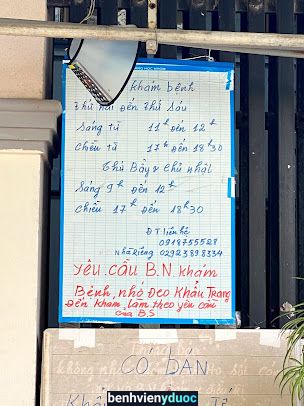 Khám bệnh
Thứ hai đến Thứ Sáu
Sáng từ 11h đến 12h
Chiều từ 17h đến 18h30
Thứ Bảy & Chủ nhật
Sáng 9h đến 12h
Chiều 17h đến 18h30
ĐT liên hệ
0918755528
Nhà Riêng 02923898334
Yêu cầu B.N khám
Bệnh, nhớ Đeo Khẩu Trang
Đến khám, làm theo yêu cầu
của B.S
CÓ BÁN
benhvienyduoc